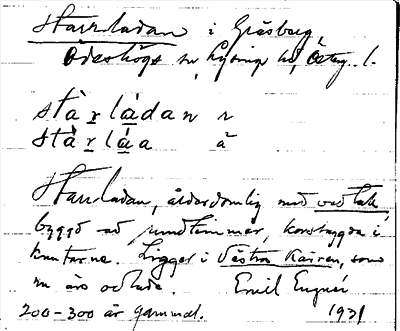 Starrladan i Gräsberg,
Ödeshögs sn, Lysings hd, Östg. l.
stàrládan n
stàrláa ā
Starrladan, ålderdomlig med vedtak
byggd av rundtimmer, korsbyggda i
knutarna. Ligger i Västra Kärren, som
nu äro odlade. Emil Engnér
200-300 år gammal. 1931